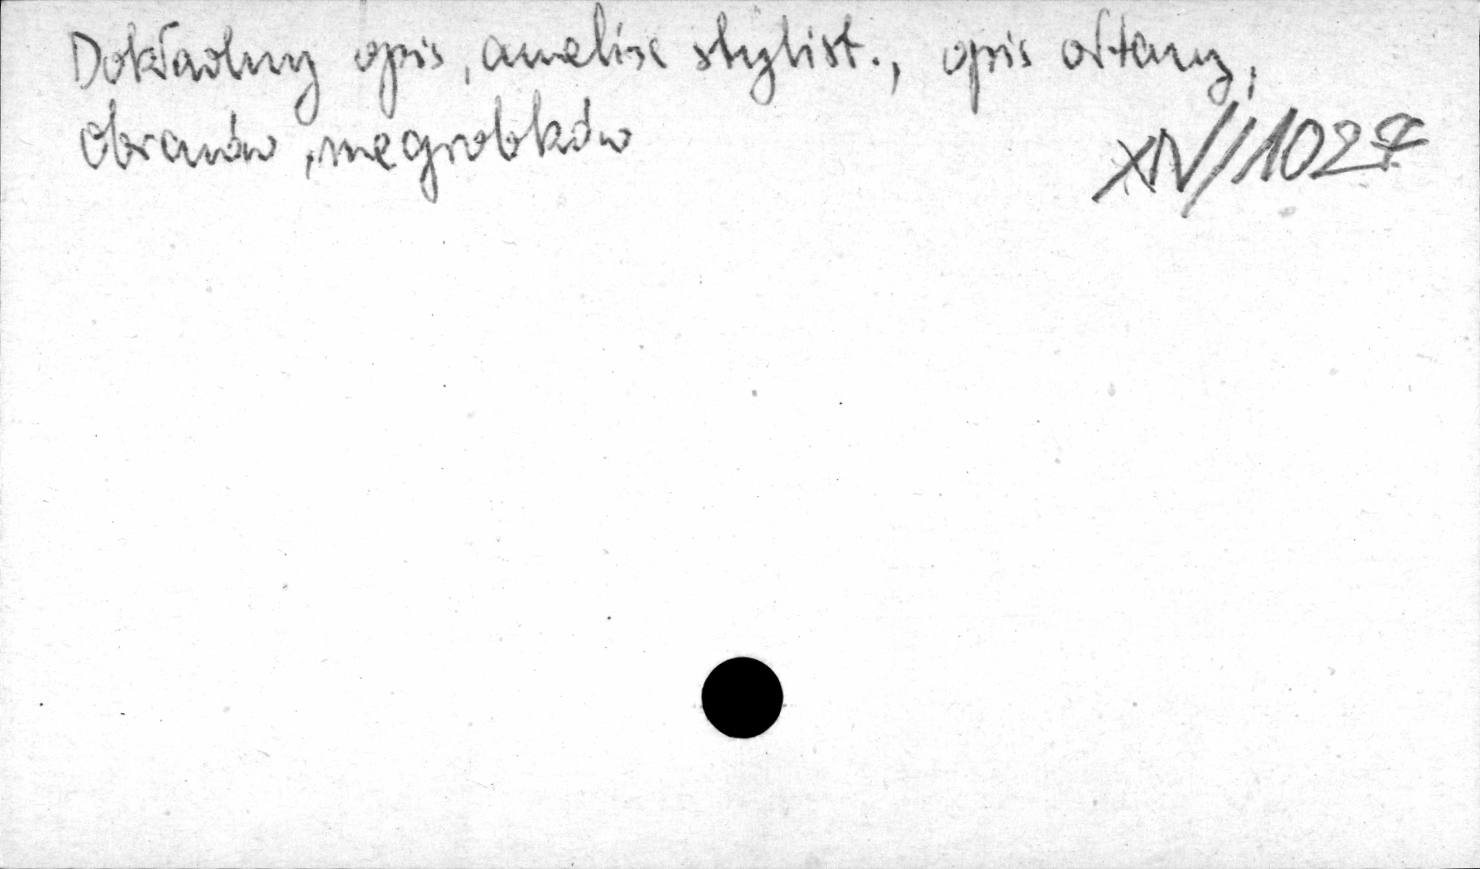 Dokładny opis, analiza stylist., opis ołtarzy,
obrazów, nagrobków
XIV/11027